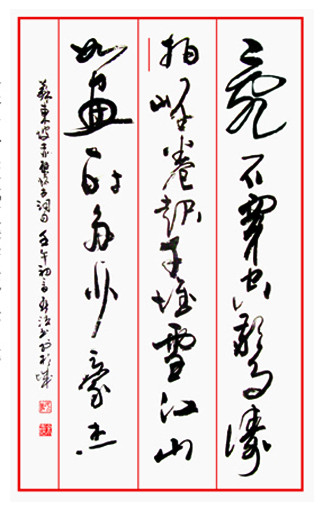 亂石穿空驚濤
拍岸卷起千堆雪江山
如畫一時多少豪杰
蘇東坡赤壁懷古詞句 壬午初